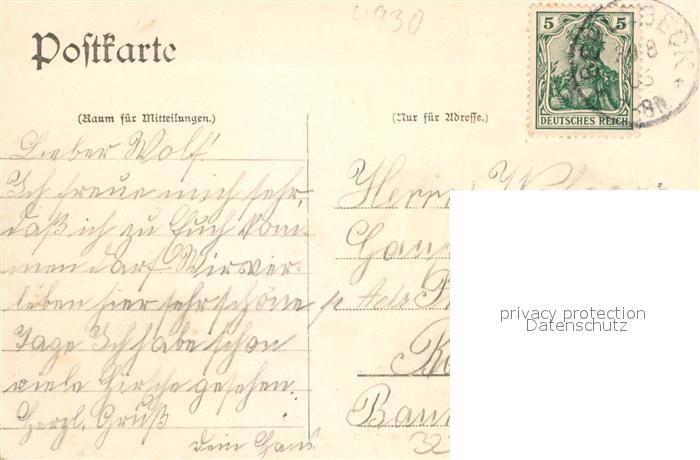 4930
Postkarte
5 5
DEUTSCHES REICH
BECK
(Raum für Mitteilungen.)
(Nur für Adresse.)
Lieber Wolf!
Ich freue mich sehr,
daß ich zu Euch kom-
men darf. Wir ver-
leben hier sehr schöne
Tage Ich habe schon
viele Hirsche gesehen.
Herzl. Gruß
Dein Hans.
Herrn
Bau
privacy protection
Datenschutz